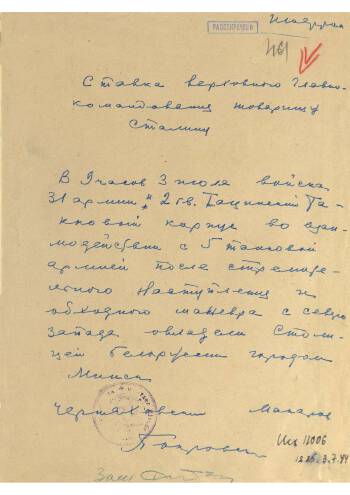 Шифром
РАССЕКРЕЧЕНО
Ставка верховного Главно-
командования товарищу
Сталину
В 9 часов 3 июля войска
31 армии и 2 гв. Тацинский Та-
нковый корпус во взаи-
модействии с 5 танковой
армией после стреми-
тельного наступления и
обходного маневра с северо
запада овладели Столи-
цей Белоруссии городом
Минск
Черняховский Макаров
Покровский
11006
3.7.44